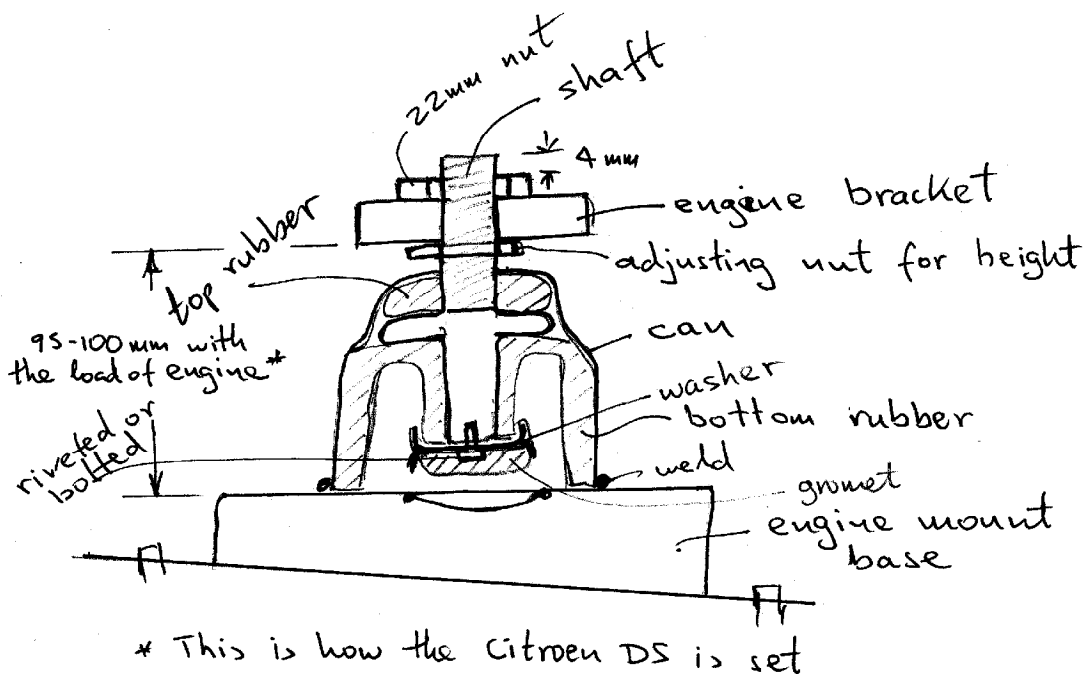 22mm nut
shaft
4 mm
engine bracket
adjusting nut for height
top rubber
95-100mm with
the load of engine*
can
washer
bottom rubber
riveted or
bolted
weld
gromet
engine mount
base
* This is how the Citroen DS is set